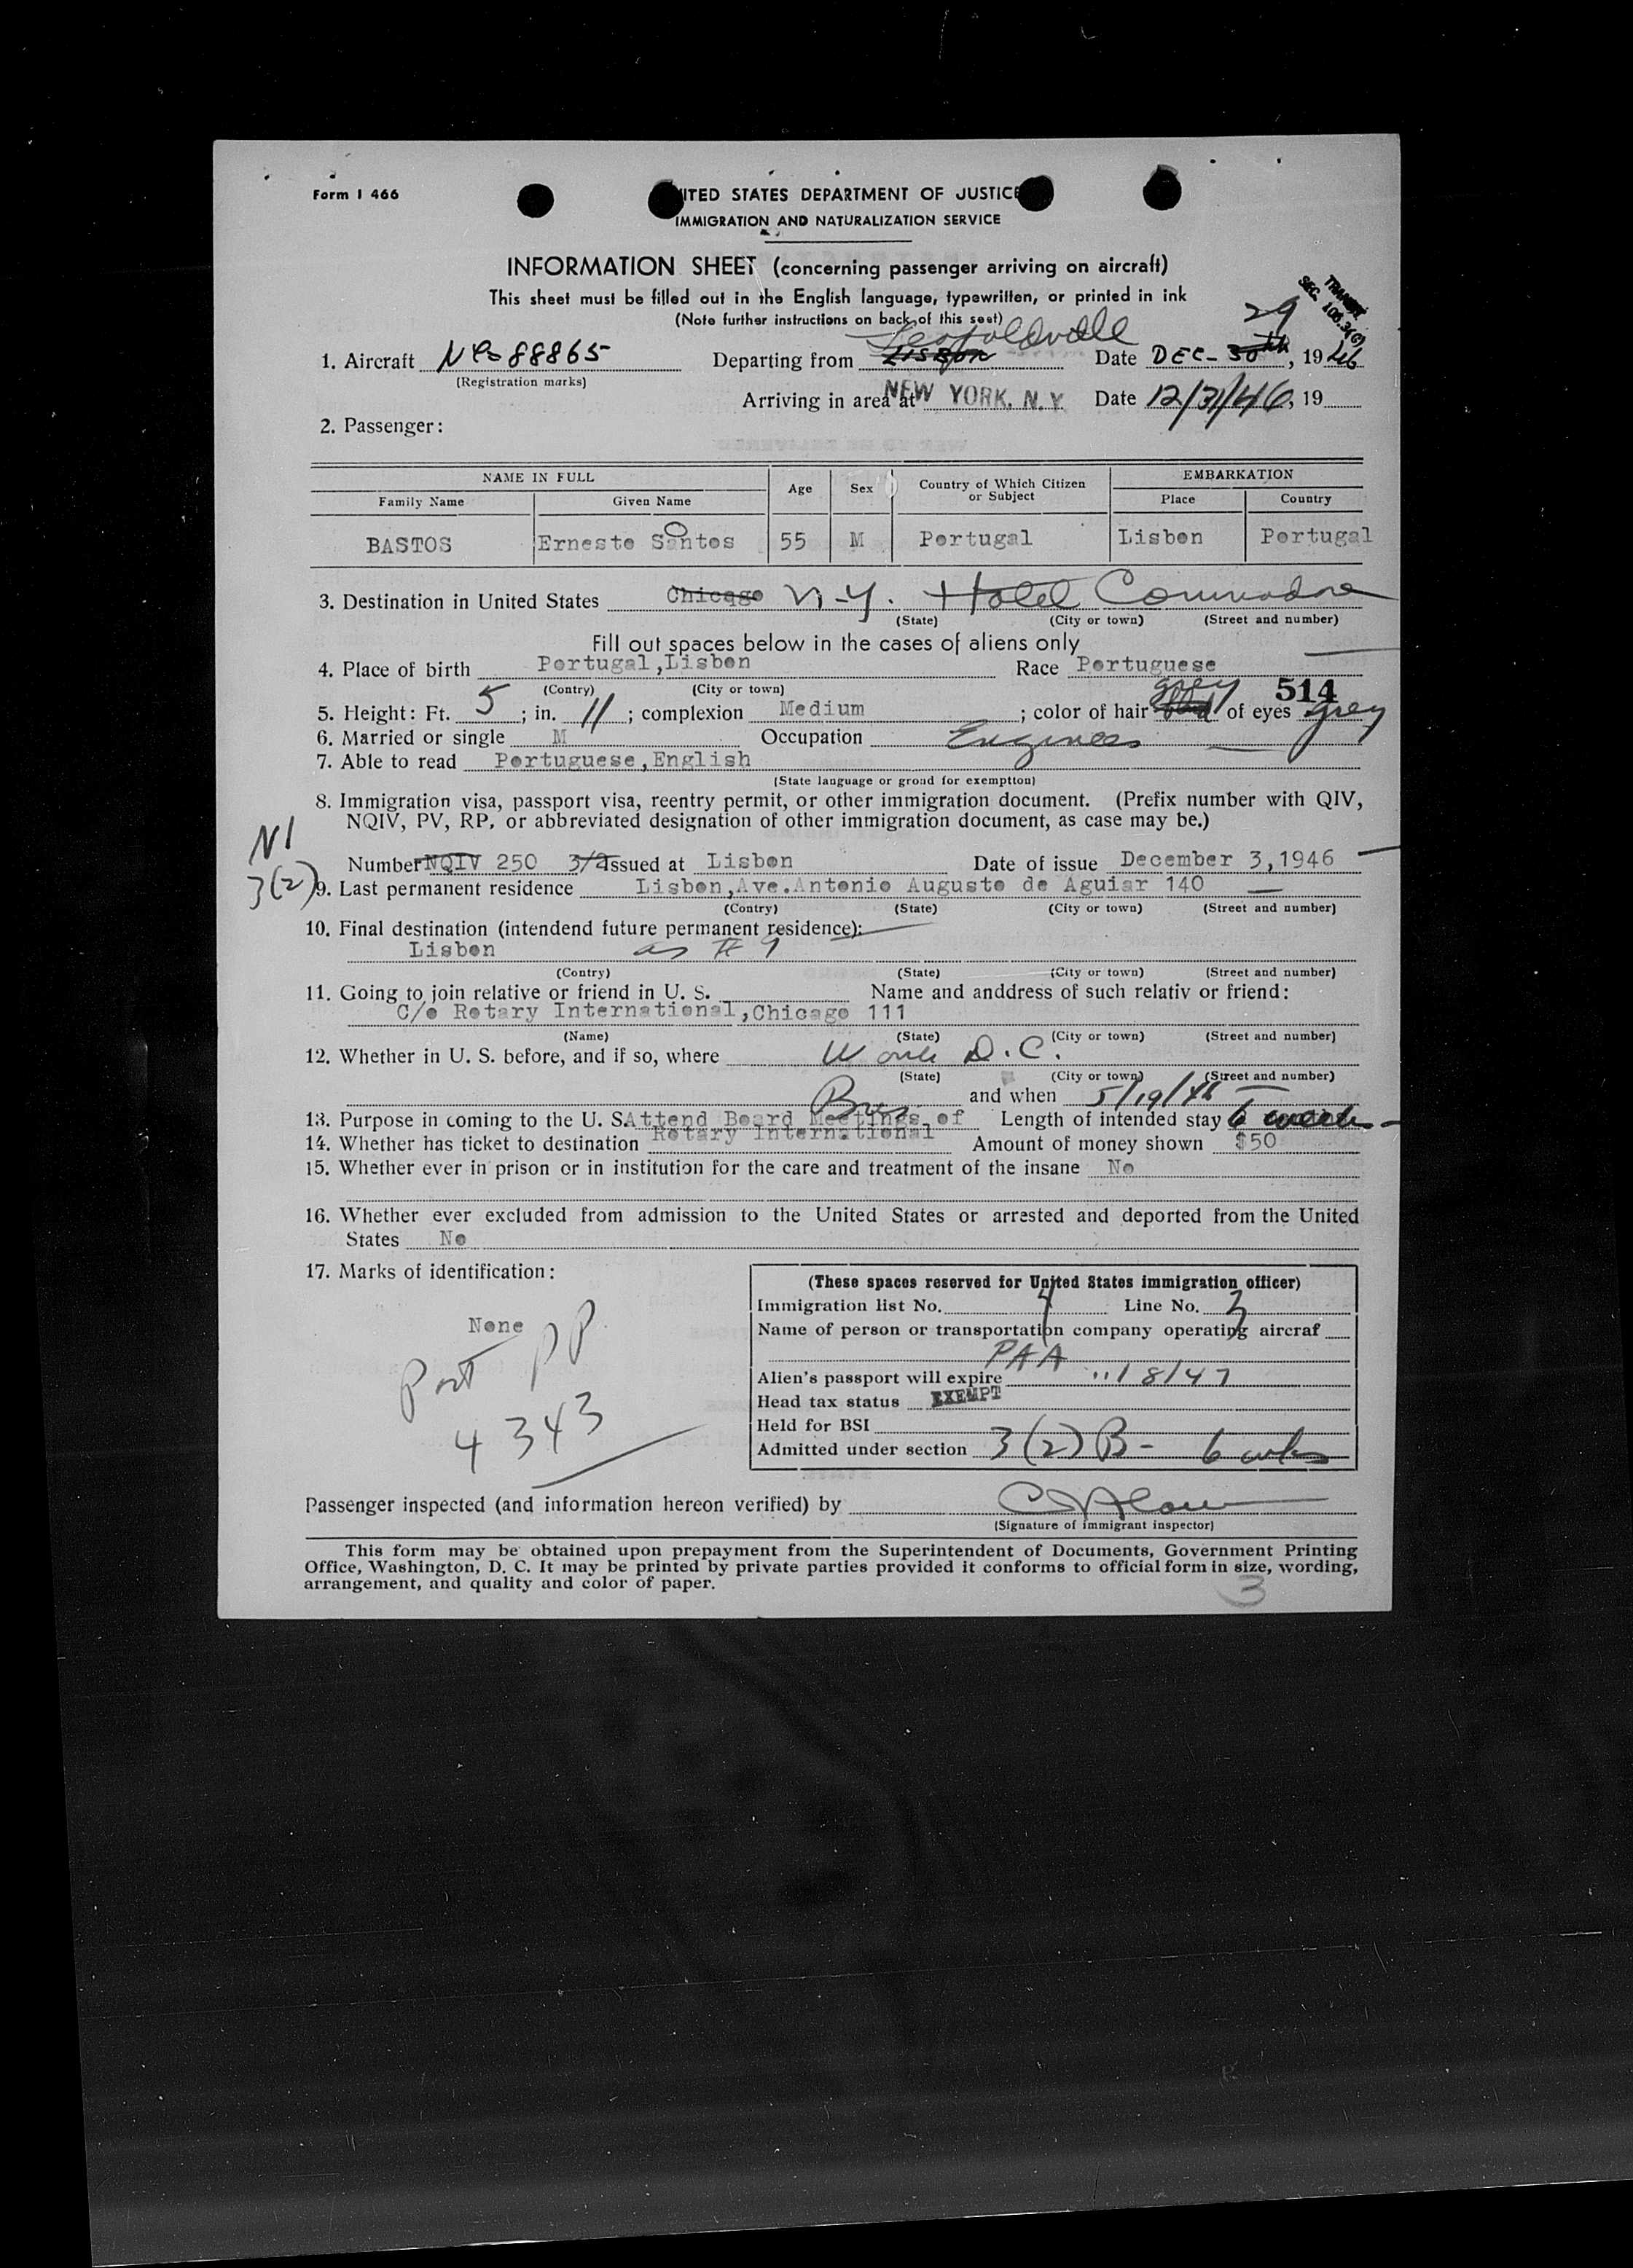 Form I 466
UNITED STATES DEPARTMENT OF JUSTICE
IMMIGRATION AND NATURALIZATION SERVICE
INFORMATION SHEET (concerning passenger arriving on aircraft)
This sheet must be filled out in the English language, typewritten, or printed in ink
(Note further instructions on back of this seet)
TRANSIT
SEC. 106.3(G)
Leopoldville 29
1. Aircraft Nc 88865 Departing from LISBON Date DEC- 30th, 1946
(Registration marks)
Arriving in area at NEW YORK, N.Y. Date 12/31/46, 19
2. Passenger:
NAME IN FULL Age Sex Country of Which Citizen or Subject EMBARKATION
Family Name Given Name Place Country
BASTOS Ernesto Santos 55 M Portugal Lisbon Portugal
3. Destination in United States Chicago N-Y. Hotel Commodore
(State) (City or town) (Street and number)
Fill out spaces below in the cases of aliens only
4. Place of birth Portugal,Lisbon Race Portuguese
(Contry) (City or town) grey 514
5. Height: Ft. 5 ; in. 11 ; complexion Medium ; color of hair of eyes grey
6. Married or single M Occupation Engineer
7. Able to read Portuguese,English
(State language or grond for exemptton)
8. Immigration visa, passport visa, reentry permit, or other immigration document. (Prefix number with QIV,
NQIV, PV, RP, or abbreviated designation of other immigration document, as case may be.)
NI
Number NQIV 250 3/2 Issued at Lisbon Date of issue December 3,1946
3(2)
9. Last permanent residence Lisbon,Ave.Antonio Augusto de Aguiar 140
(Contry) (State) (City or town) (Street and number)
10. Final destination (intendend future permanent residence):
Lisbon as # 9
(Contry) (State) (City or town) (Street and number)
11. Going to join relative or friend in U. S. Name and anddress of such relativ or friend:
C/o Rotary International,Chicago 111
(Name) (State) (City or town) (Street and number)
12. Whether in U. S. before, and if so, where D.C.
(State) (City or town) (Street and number)
and when 5/19/46
Bus.
13. Purpose in coming to the U. S. Attend Board Meetings of Length of intended stay 6 weeks
14. Whether has ticket to destination Rotary International Amount of money shown $50
15. Whether ever in prison or in institution for the care and treatment of the insane No
16. Whether ever excluded from admission to the United States or arrested and deported from the United
States No
17. Marks of identification:
None
Port PP
4343
(These spaces reserved for United States immigration officer)
Immigration list No. 4 Line No. 3
Name of person or transportation company operating aircraf
PAA
Alien's passport will expire 8/47
Head tax status EXEMPT
Held for BSI
Admitted under section 3(2) B - 6 wks
Passenger inspected (and information hereon verified) by
(Signature of immigrant inspector)
This form may be obtained upon prepayment from the Superintendent of Documents, Government Printing
Office, Washington, D. C. It may be printed by private parties provided it conforms to official form in size, wording,
arrangement, and quality and color of paper.
3